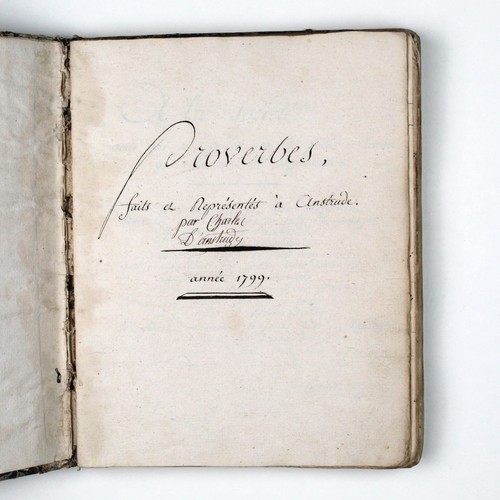 Proverbes,
faits et Représentés à Anstrude.
par Charles
D'anstrudes
année 1799.